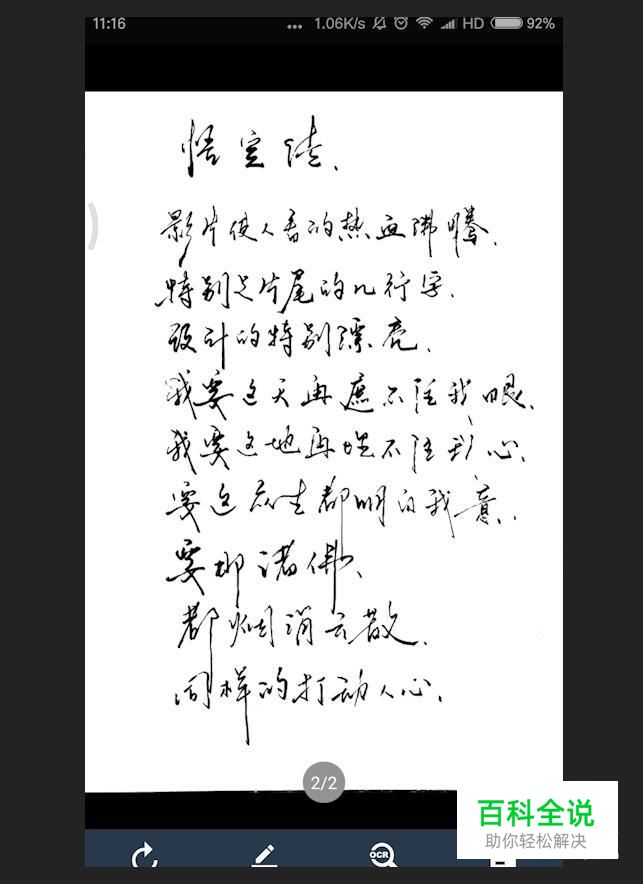 11:16 ... 1.06K/s HD 92%
悟空传、
影片使人看的热血沸腾、
特别是片尾的几行字、
设计的特别漂亮、
我要这天再遮不住我眼、
我要这地再埋不住我心、
要这众生都明白我意、
要那诸佛、
都烟消云散、
同样的打动人心、
2/2
OCR
百科全说
助你轻松解决